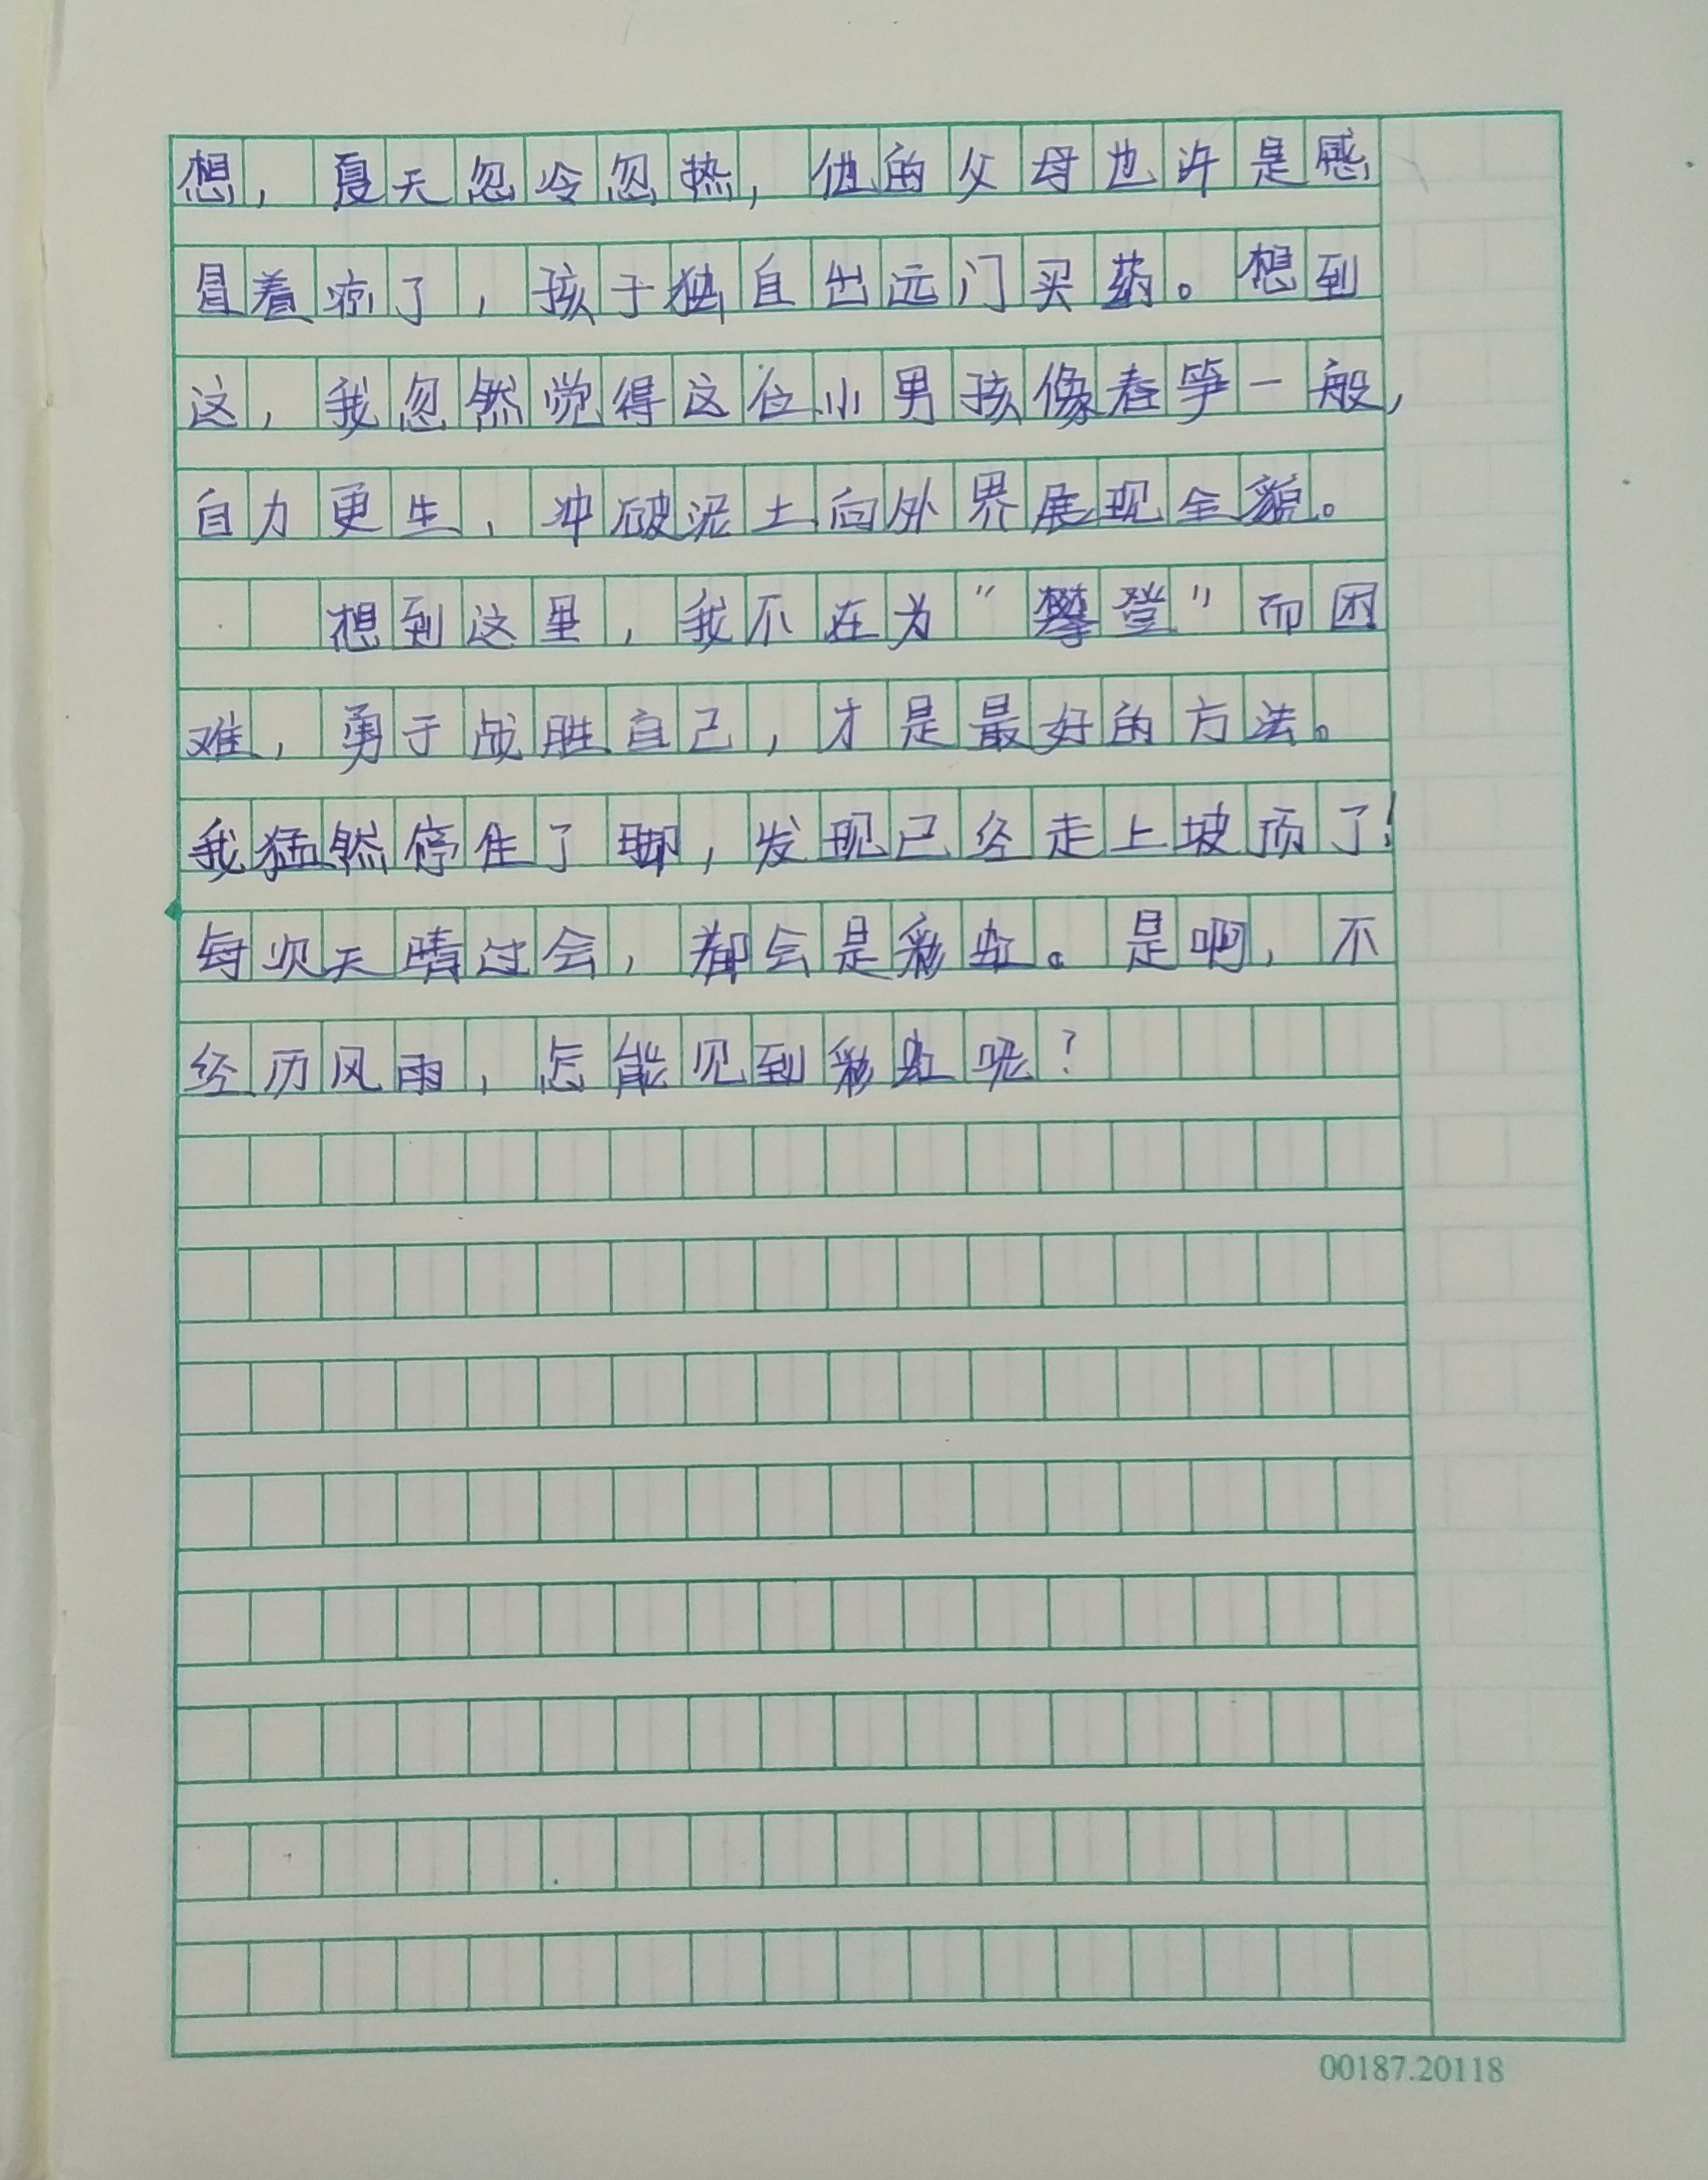 想，夏天忽冷忽热，他的父母也许是感
冒着凉了，孩子独自出远门买药。想到
这，我忽然觉得这位小男孩像春笋一般，
自力更生，冲破泥土向外界展现全貌。
想到这里，我不在为“攀登”而困
难，勇于战胜自己，才是最好的方法。
我猛然停住了脚，发现已经走上坡顶了！
每次天晴过会，都会是彩虹。是啊，不
经历风雨，怎能见到彩虹呢？
00187.20118